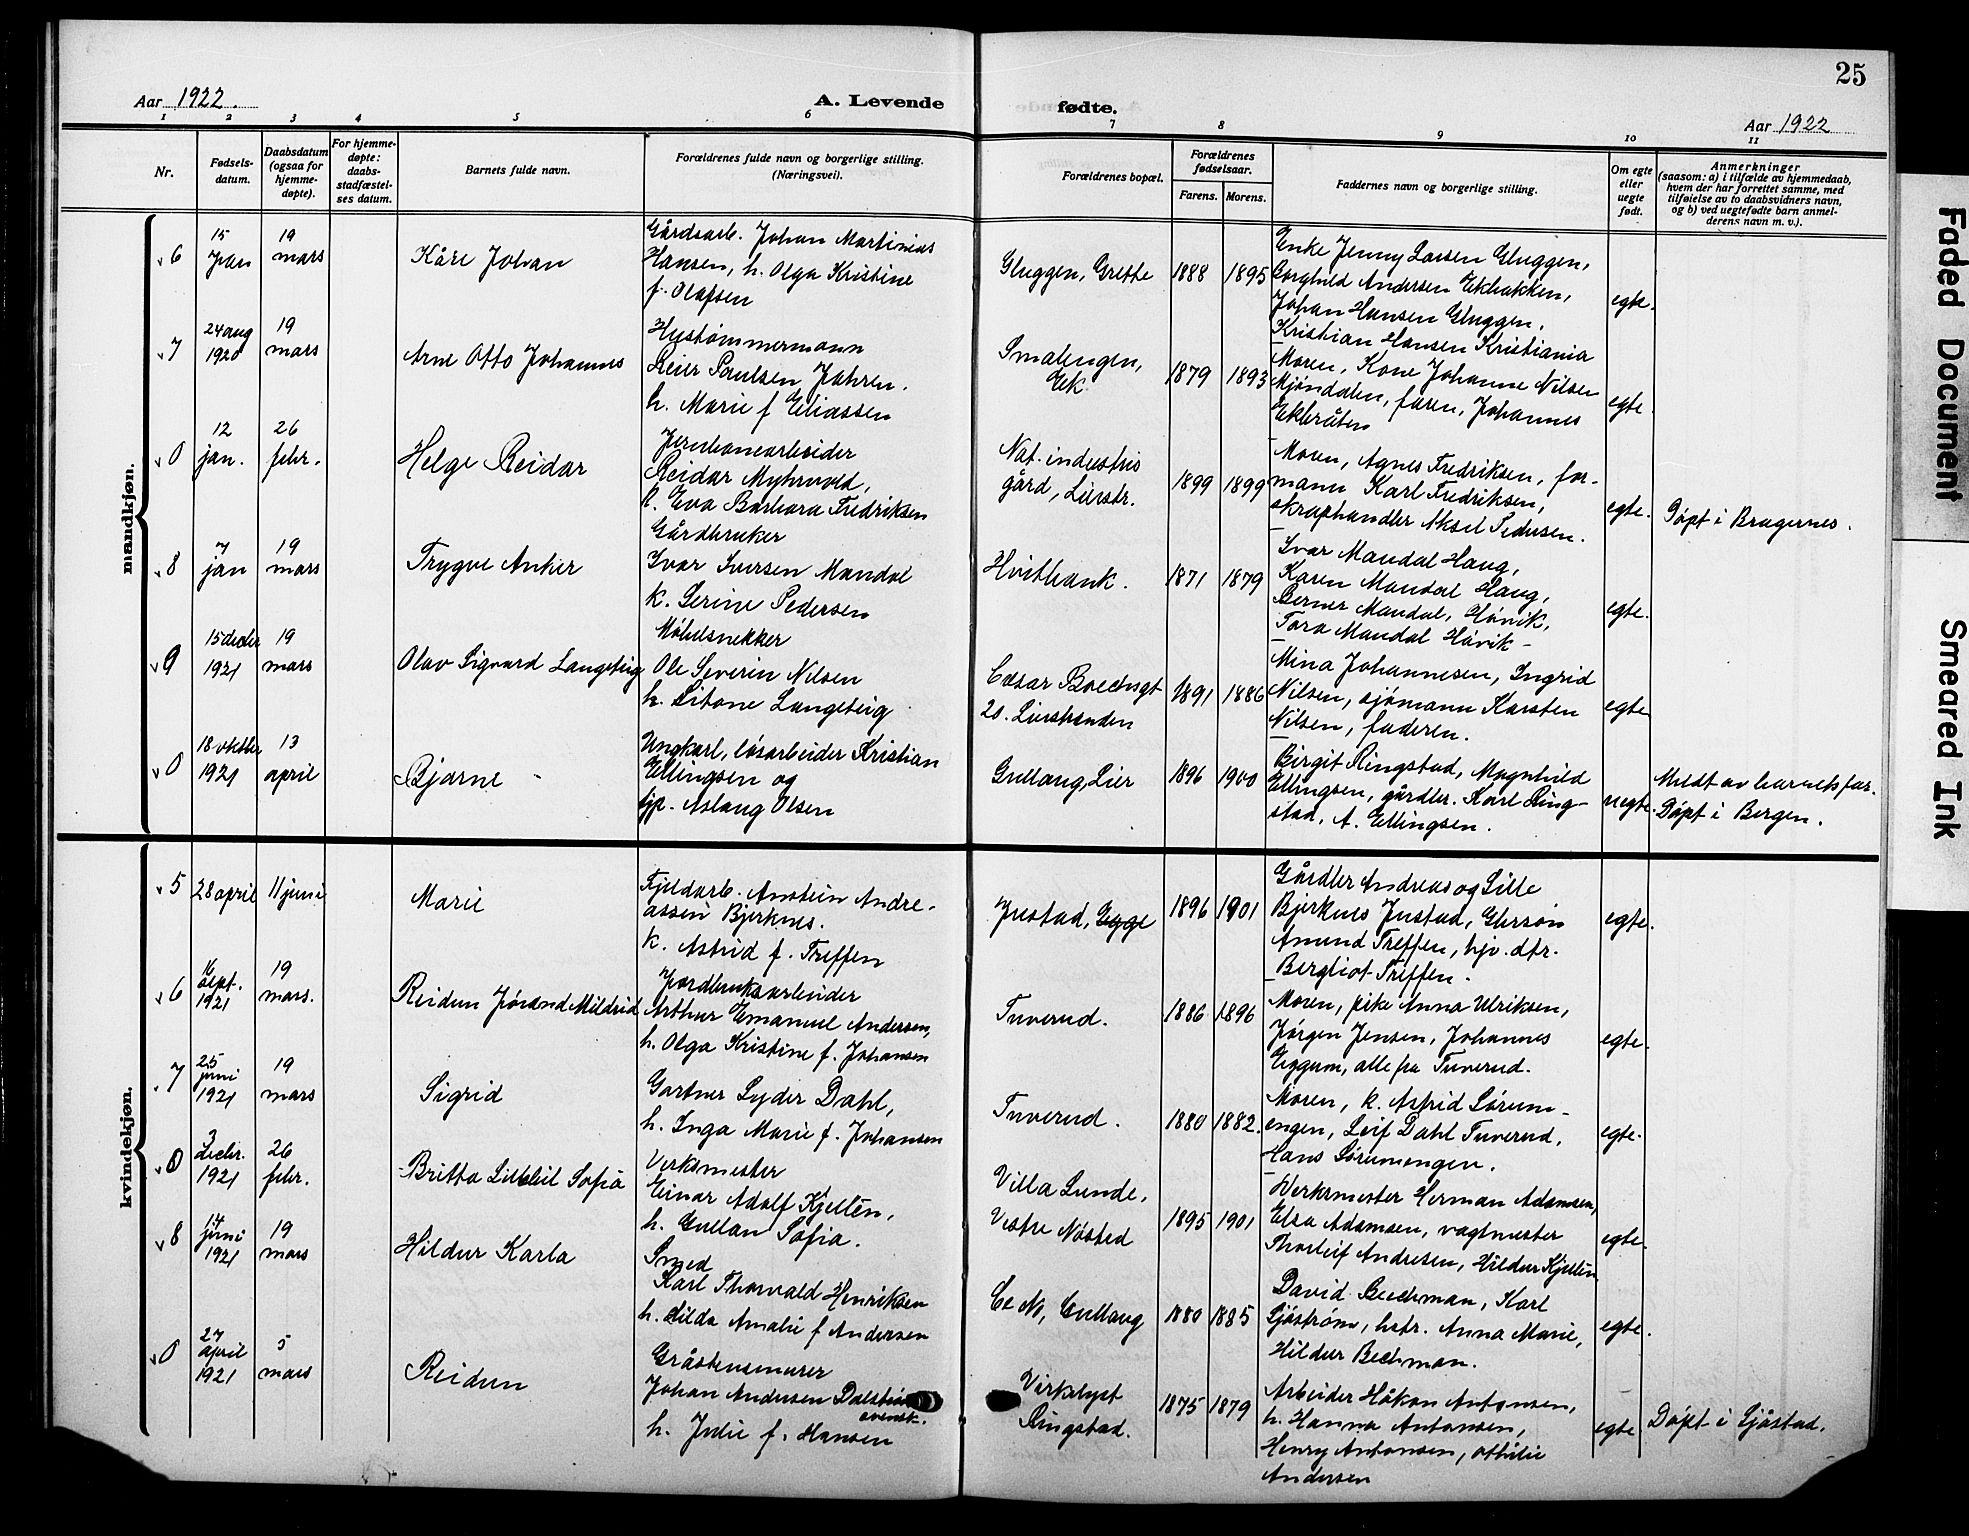 25
Aar 1922.
A. Levende
fødte.
Aar 1922
1 2 3 4 5 6 7 8 9 10 11
Nr.
Fødsels-
datum.
Daabsdatum
(ogsaa for
hjemme-
døpte).
For hjemme-
døpte:
daabs-
stadfæstel-
ses datum.
Barnets fulde navn.
Forældrenes fulde navn og borgerlige stilling.
(Næringsvei).
Forældrenes bopæl.
Forældrenes
fødselsaar.
Farens. Morens.
Faddernes navn og borgerlige stilling.
Om egte
eller
uegte
født.
Anmerkninger
(saasom: a) i tilfælde av hjemmedaab,
hvem der har forrettet samme, med
tilføielse av to daabsvidners navn,
og b) ved uegtefødte barn anmel-
derens navn m. v.).
mandkjøn.
6
15
jan
19
mars
Kåre Johan
Gårdsarb. Johan Martinius
Hansen, h. Olga Kristine
f. Olafsen
Gluggen, Grette
1888
1895
Enke Jenny Larsen Gluggen,
Borghild Andersen Ekbakken,
Johan Hansen Gluggen,
Kristian Hansen Kristiania
egte.
7
24 aug
1920
19
mars
Arne Otto Johannes
Hustømmermann
Reier Paulsen Jahren.
h. Marie f Eliassen
Smalengen,
Ek
1879
1893
Moren, Kone Johanne Nilsen
Mjøndalen, faren, Johannes
Ekbråten
egte.
0
12
jan.
26
febr.
Helge Reidar
Jernbanearbeider
Reidar Myhrvold,
h. Eva Barbara Fredriksen
Nat. industris
gård, Lierstr.
1899
1899
Moren, Agnes Fredriksen, for-
mann Karl Fredriksen,
skraphandler Aksel Pedersen.
egte.
Døpt i Bragernes.
8
7
jan
19
mars
Trygve Anker
Gårdbruker
Ivar Iversen Mandal
k. Serine Pedersen
Hvitbank.
1871
1879
Ivar Mandal Haug,
Karen Mandal Haug,
Berner Mandal, Høvik,
Tora Mandal Høvik
egte.
9
15 decbr
1921
19
mars
Olav Sigvard Langeteig
Møbelsnekker
Ole Severin Nilsen
h. Sitone Langeteig
Cæsar Boechsgt
20. Lierstranden
1891
1886
Mina Johannesen, Ingrid
Nilsen, sjømann Karsten
Nilsen, faderen.
egte
0
18 oktbr
1921
13
april
Bjarne
Ungkarl, løsarbeider Kristian
Ellingsen og
tjp. Aslaug Olsen
Gullaug, Lier
1896
1900
Birgit Ringstad, Magnhild
Ellingsen, gårdbr. Karl Ring-
stad, A. Ellingsen.
uegte.
Meldt av barnets far.
Døpt i Bergen.
kvindekjøn.
5
28 april
11 juni
Marie
Fjeldarb. Anstein Andre-
assen Bjerknes.
k. Astrid f. Treffen
Justad, Egge
1896
1901
Gårdbr Andreas og Lille
Bjerknes Justad,
Amund Treffen, hjv. dtr.
Bergliot Treffen.
egte.
6
16
sept.
1921
19
mars.
Reidun Jorand Mildrid
Jordbruksarbeider
Arthur Emanuel Andersen,
h. Olga Kristine f. Johansen
Tuverud.
1886
1896
Moren, pike Anna Ulriksen,
Jørgen Jensen, Johannes
Eggum, alle fra Tuverud.
egte.
7
25
juni
1921
19
mars
Sigrid
Gartner Lyder Dahl,
h. Inga Marie f. Johansen
Tuverud.
1880
1882.
Moren, k. Astrid Sørum-
engen, Leif Dahl Tuverud,
Hans Sørumengen.
egte.
0
3
decbr.
1921
26
febr.
Britta Sofia
Verksmester
Einar Adolf Kjellén,
h. Gullan Sofia.
Villa Lunde,
Vestre Nøsted
1895
1901
Verksmester Herman Adamsen,
Elsa Adamsen, vagtmester
Thorleif Andresen, Hildur Kjellén
egte.
8
14
juni
1921
19
mars
Hildur Karla
Smed
Karl Thorvald Henriksen
h. Hilda Amalie f Andersen
Gullaug
1880
1885
David Bechman, Karl
Sjøstrøm, hstr. Anna Marie,
Hildur Bechman.
egte.
0
27
april
1921
5
mars
Reidun
Gråstensmurer
Johan Andersen
svensk.
h. Julie f. Hansen
Virkelyst
Ringstad.
1875
1879
Arbeider Håkon Antonsen,
h. Hanna Antonsen,
Henry Antonsen, Othilie
Andersen
egte
Døpt i Sjåstad.
Faded Document
Smeared Ink